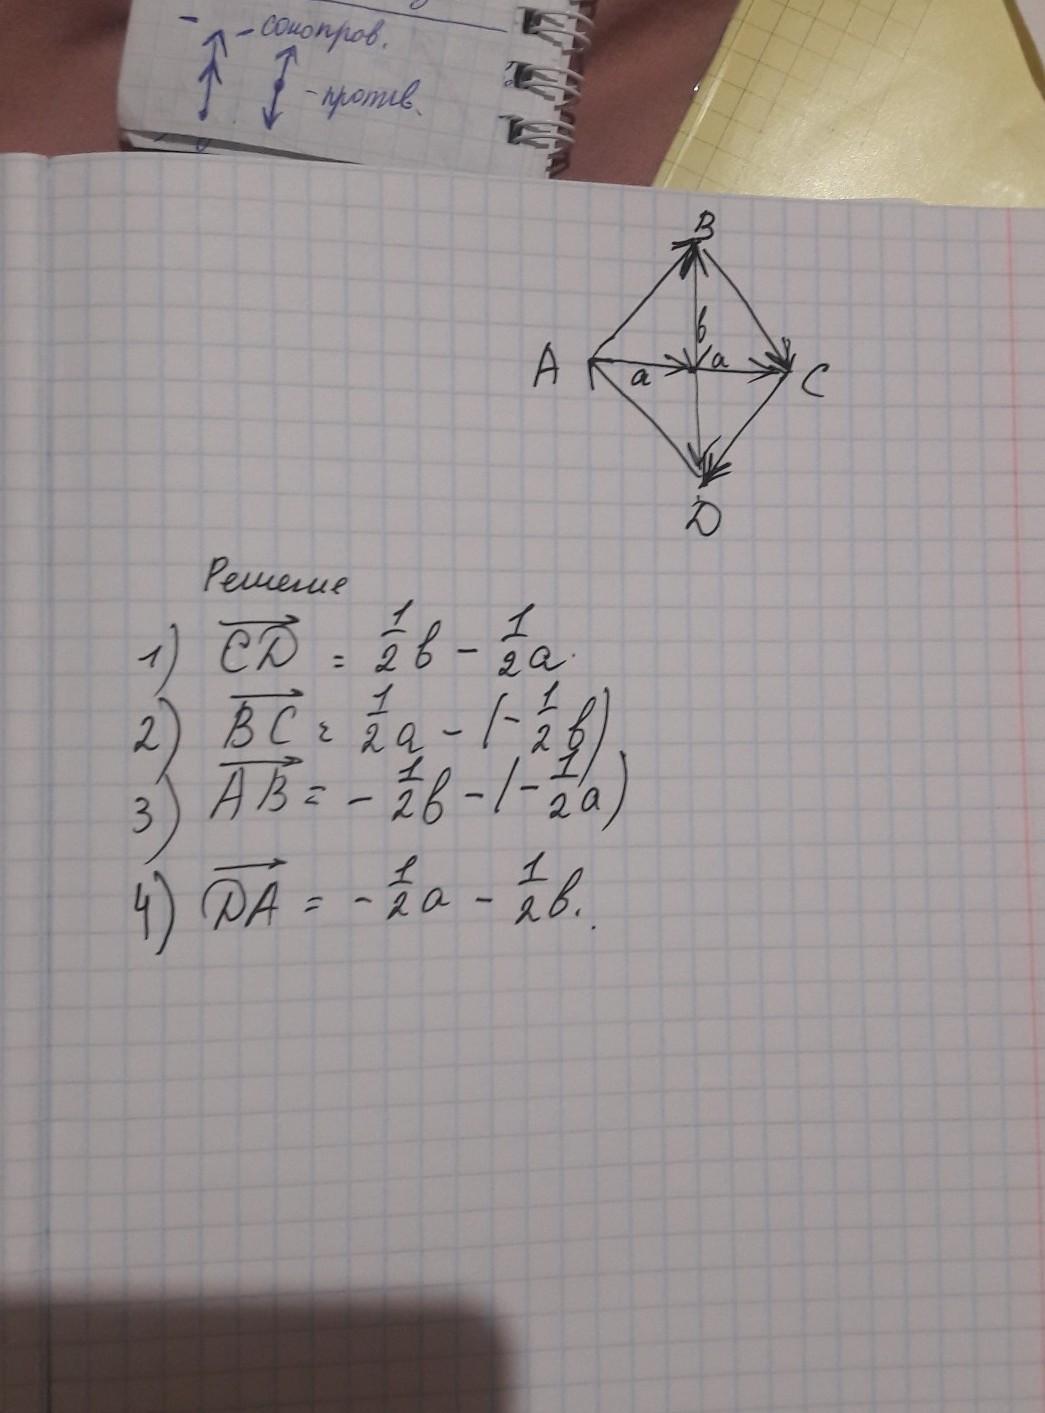 - сонопров.
- против.
B
b
A a a C
D
Решение
1) CD = 1/2 b - 1/2 a.
2) BC = 1/2 a - (- 1/2 b)
3) AB = - 1/2 b - (- 1/2 a)
4) DA = - 1/2 a - 1/2 b.